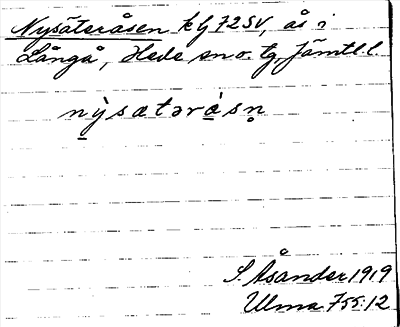 Nysäteråsen kf 72 SV, ås i
Långå, Hede sn o. tg, Jämtl. l.
nỳsætəràsn̥
S. Åsander 1919
Ulma 755:12